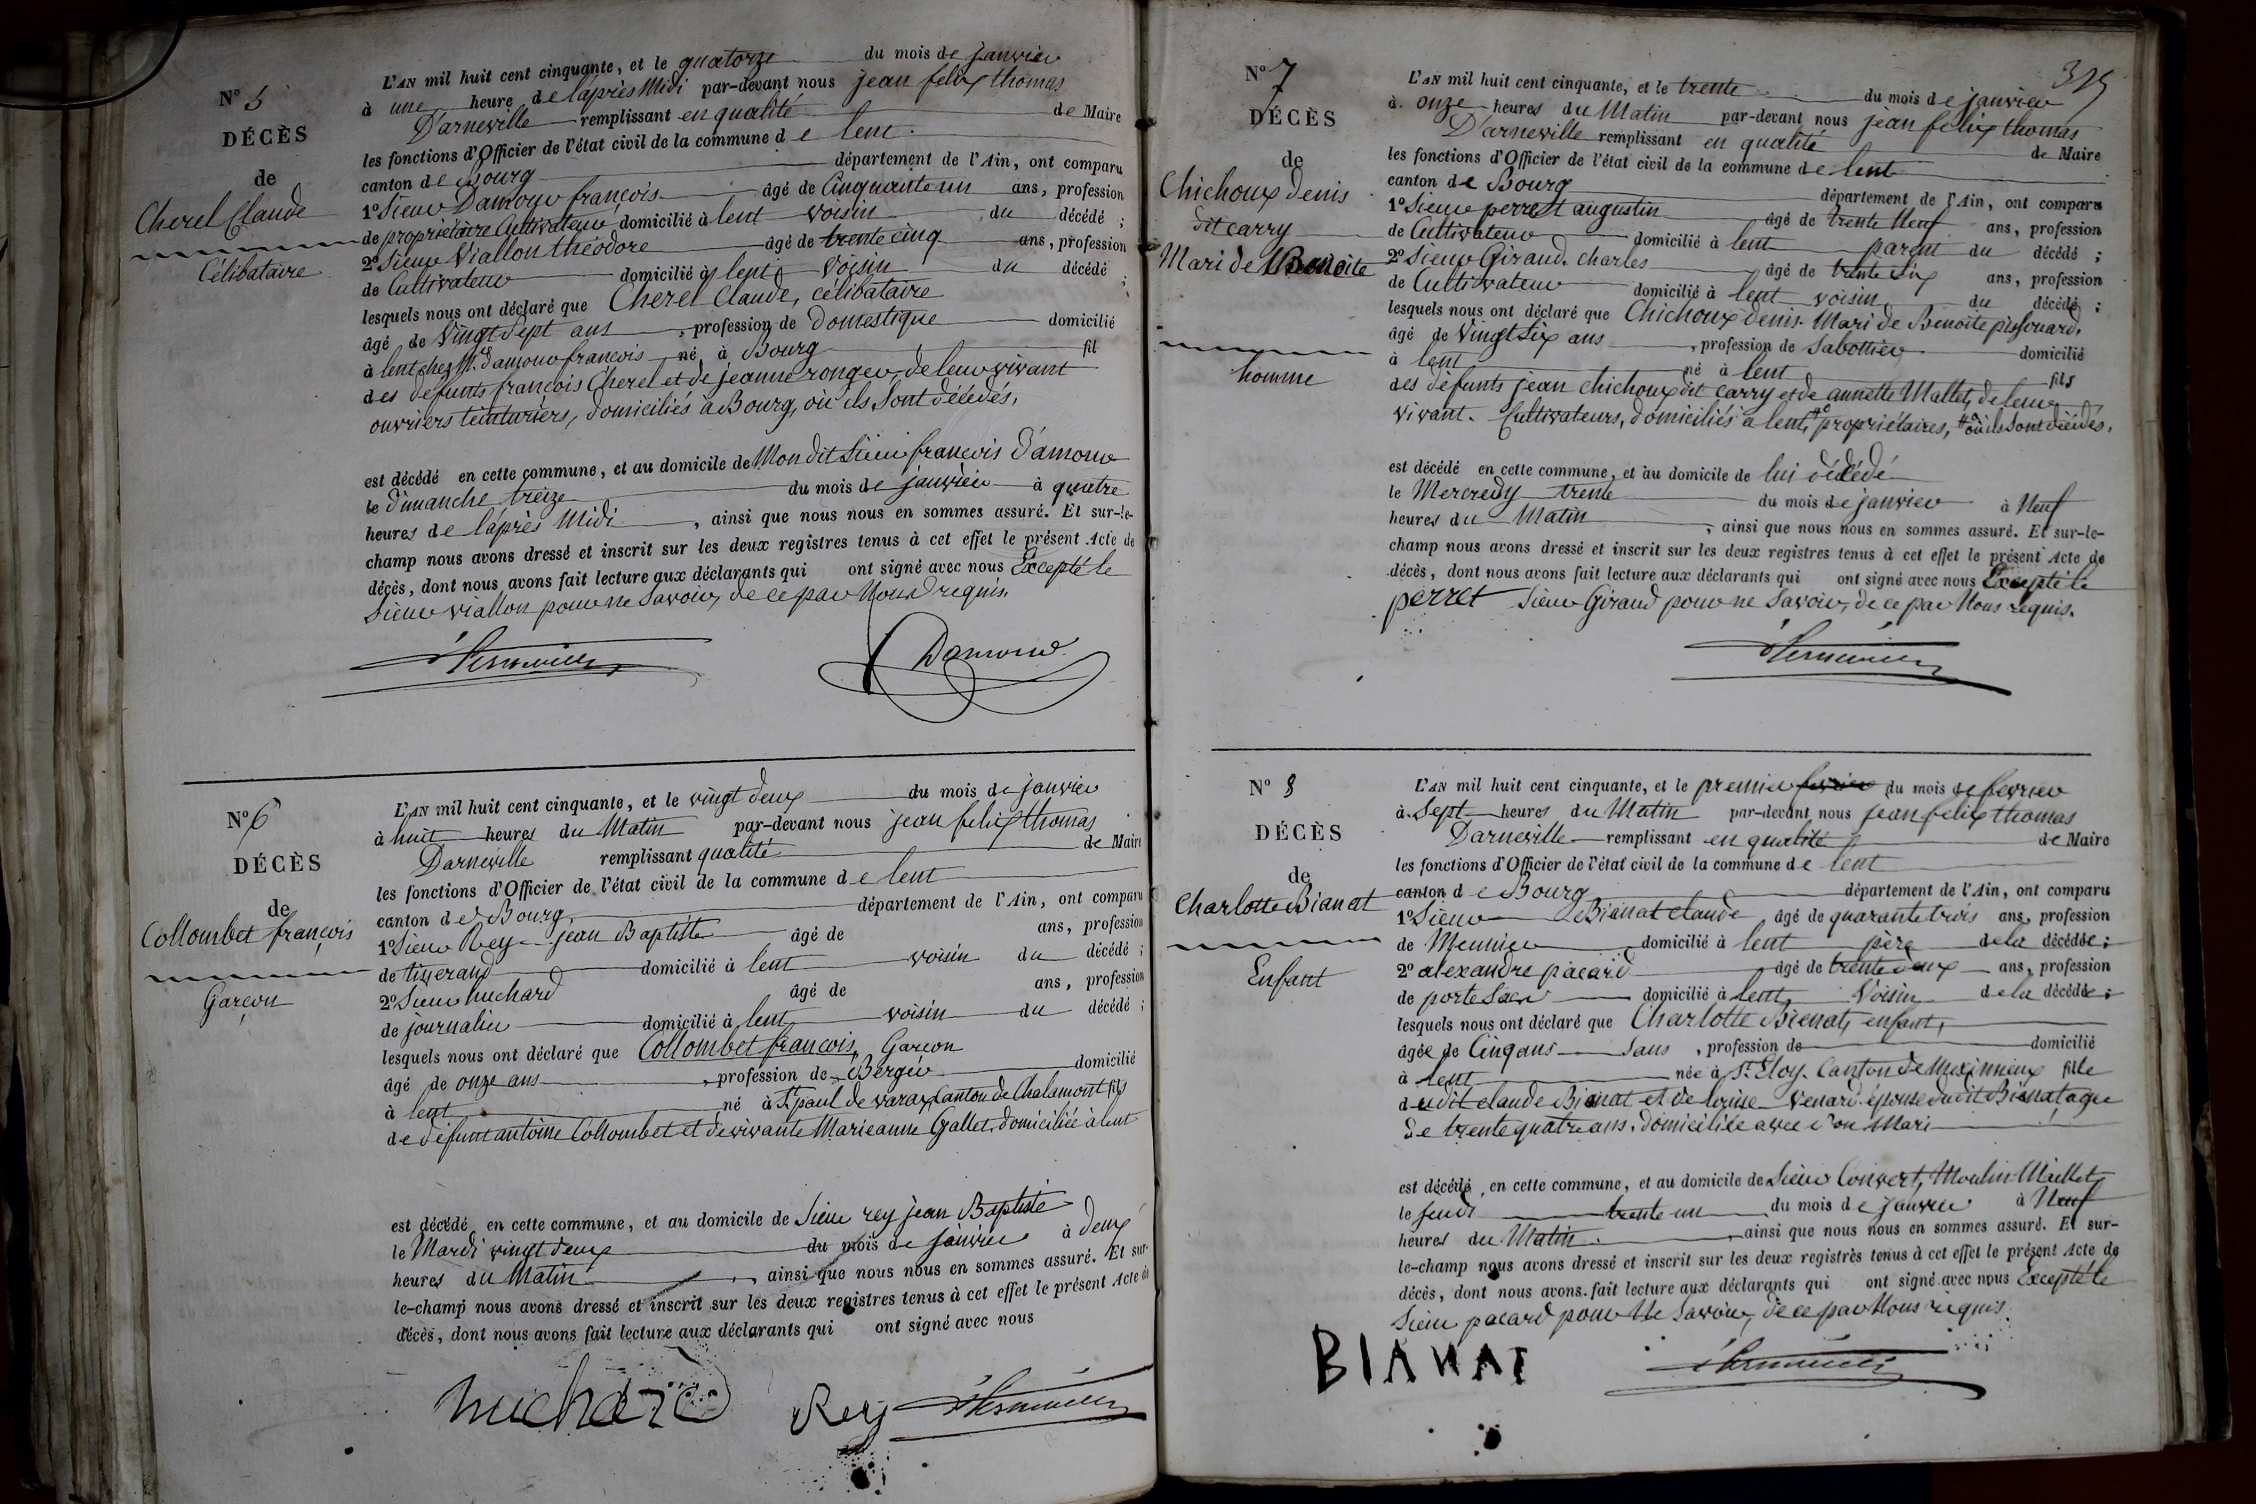 N° 5
DÉCÈS
de
Cherel Claude
Célibataire
L'AN mil huit cent cinquante, et le quatorze du mois de janvier
à une heure de l'après Midi par-devant nous jean felix thomas
D'arneville remplissant en qualité de Maire
les fonctions d'Officier de l'état civil de la commune de lent
canton de Bourg département de l'Ain, ont comparu
1° Sieur Damour françois âgé de Cinquante un ans, profession
de propriétaire Cultivateur domicilié à lent voisin du décédé ;
2° Sieur Viallon théodore âgé de trente cinq ans, profession
de Cultivateur domicilié à lent voisin du décédé ;
lesquels nous ont déclaré que Cherel Claude, célibataire
âgé de Vingt Sept ans, profession de Domestique domicilié
à lent chez Mr. damour francois né à Bourg fil
des défunts françois Cherel et de jeanne ronger, de leur vivant
ouvriers teinturiers, domiciliés à Bourg, où ils sont décédés,
est décédé en cette commune, et au domicile de Mon dit Sieur francois D'amour
le Dimanche treize du mois de janvier à quatre
heures de l'après Midi, ainsi que nous nous en sommes assuré. Et sur-le-
champ nous avons dressé et inscrit sur les deux registres tenus à cet effet le présent Acte de
décès, dont nous avons fait lecture aux déclarants qui ont signé avec nous Excepté le
Sieur viallon pour ne Savoir, de ce par Nous requis.
Damour
N° 6
DÉCÈS
de
Collombet françois
Garçon
L'AN mil huit cent cinquante, et le vingt deux du mois de janvier
à huit heures du Matin par-devant nous jean felix thomas
Darneville remplissant qualité de Maire
les fonctions d'Officier de l'état civil de la commune de lent
canton de Bourg département de l'Ain, ont comparu
1° Sieur Rey jean Baptiste âgé de ans, profession
de tisserand domicilié à lent voisin du décédé ;
2° Sieur huchard âgé de ans, profession
de journalier domicilié à lent voisin du décédé ;
lesquels nous ont déclaré que Collombet francois, Garcon
âgé de onze ans, profession de Berger domicilié
à lent né à St. paul de varax Canton de Chalamont fils
de défunt antoine Collombet et de vivante Marieanne Gallet, domiciliée à lent
est décédé en cette commune, et au domicile de Sieur rey jean Baptiste
le Mardi vingt deux du mois de janvier à deux
heures du Matin, ainsi que nous nous en sommes assuré. Et sur-
le-champ nous avons dressé et inscrit sur les deux registres tenus à cet effet le présent Acte de
décès, dont nous avons fait lecture aux déclarants qui ont signé avec nous
Rey
325
N° 7
DÉCÈS
de
Chichoux denis
dit carry
Mari de Benoite
homme
L'AN mil huit cent cinquante, et le trente du mois de janvier
à onze heures du Matin par-devant nous jean felix thomas
D'arneville remplissant en qualité de Maire
les fonctions d'Officier de l'état civil de la commune de lent
canton de Bourg département de l'Ain, ont comparu
1° Sieur perret augustin âgé de trente Neuf ans, profession
de Cultivateur domicilié à lent parent du décédé ;
2° Sieur Giraud charles âgé de trente Six ans, profession
de Cultivateur domicilié à lent voisin du décédé ;
lesquels nous ont déclaré que Chichoux denis. Mari de Benoite
âgé de Vingt Six ans, profession de Sabottier domicilié
à lent né à lent fils
des défunts jean chichoux dit carry et de annette Mallet, de leur
vivant. Cultivateurs, domiciliés à lent, propriétaires, où ils sont décédés,
est décédé en cette commune, et au domicile de lui décédé
le Mercredy trente du mois de janvier à Neuf
heures du Matin, ainsi que nous nous en sommes assuré. Et sur-le-
champ nous avons dressé et inscrit sur les deux registres tenus à cet effet le présent Acte de
décès, dont nous avons fait lecture aux déclarants qui ont signé avec nous Excepté le
perret Sieur Giraud pour ne Savoir, de ce par Nous requis.
N° 8
DÉCÈS
de
Charlotte Bianat
Enfant
L'AN mil huit cent cinquante, et le premier fevrier du mois de fevrier
à Sept heures du Matin par-devant nous jean felix thomas
Darneville remplissant en qualité de Maire
les fonctions d'Officier de l'état civil de la commune de lent
canton de Bourg département de l'Ain, ont comparu
1° Sieur Bianat claude âgé de quarante trois ans, profession
de Meunier domicilié à lent père de la décédée ;
2° alexandre pacard âgé de trente deux ans, profession
de porte Sacs domicilié à lent, Voisin de la décédée ;
lesquels nous ont déclaré que Charlotte Bienat, enfant,
âgée de Cinq ans Sans, profession de domicilié
à lent née à St. Eloy. Canton de Meximieux fille
dudit claude Bianat et de louise Venard épouse dudit Bianat, agée
de trente quatre ans, domiciliée avec Son Mari
est décédé en cette commune, et au domicile de Sieur Convert, Moulin Millet,
le jeudi trente un du mois de janvier à Neuf
heures du Matin, ainsi que nous nous en sommes assuré. Et sur-
le-champ nous avons dressé et inscrit sur les deux registres tenus à cet effet le présent Acte de
décès, dont nous avons fait lecture aux déclarants qui ont signé avec nous Excepté le
Sieur pacard pour Ne Savoir, de ce par Nous requis.
BIANAT